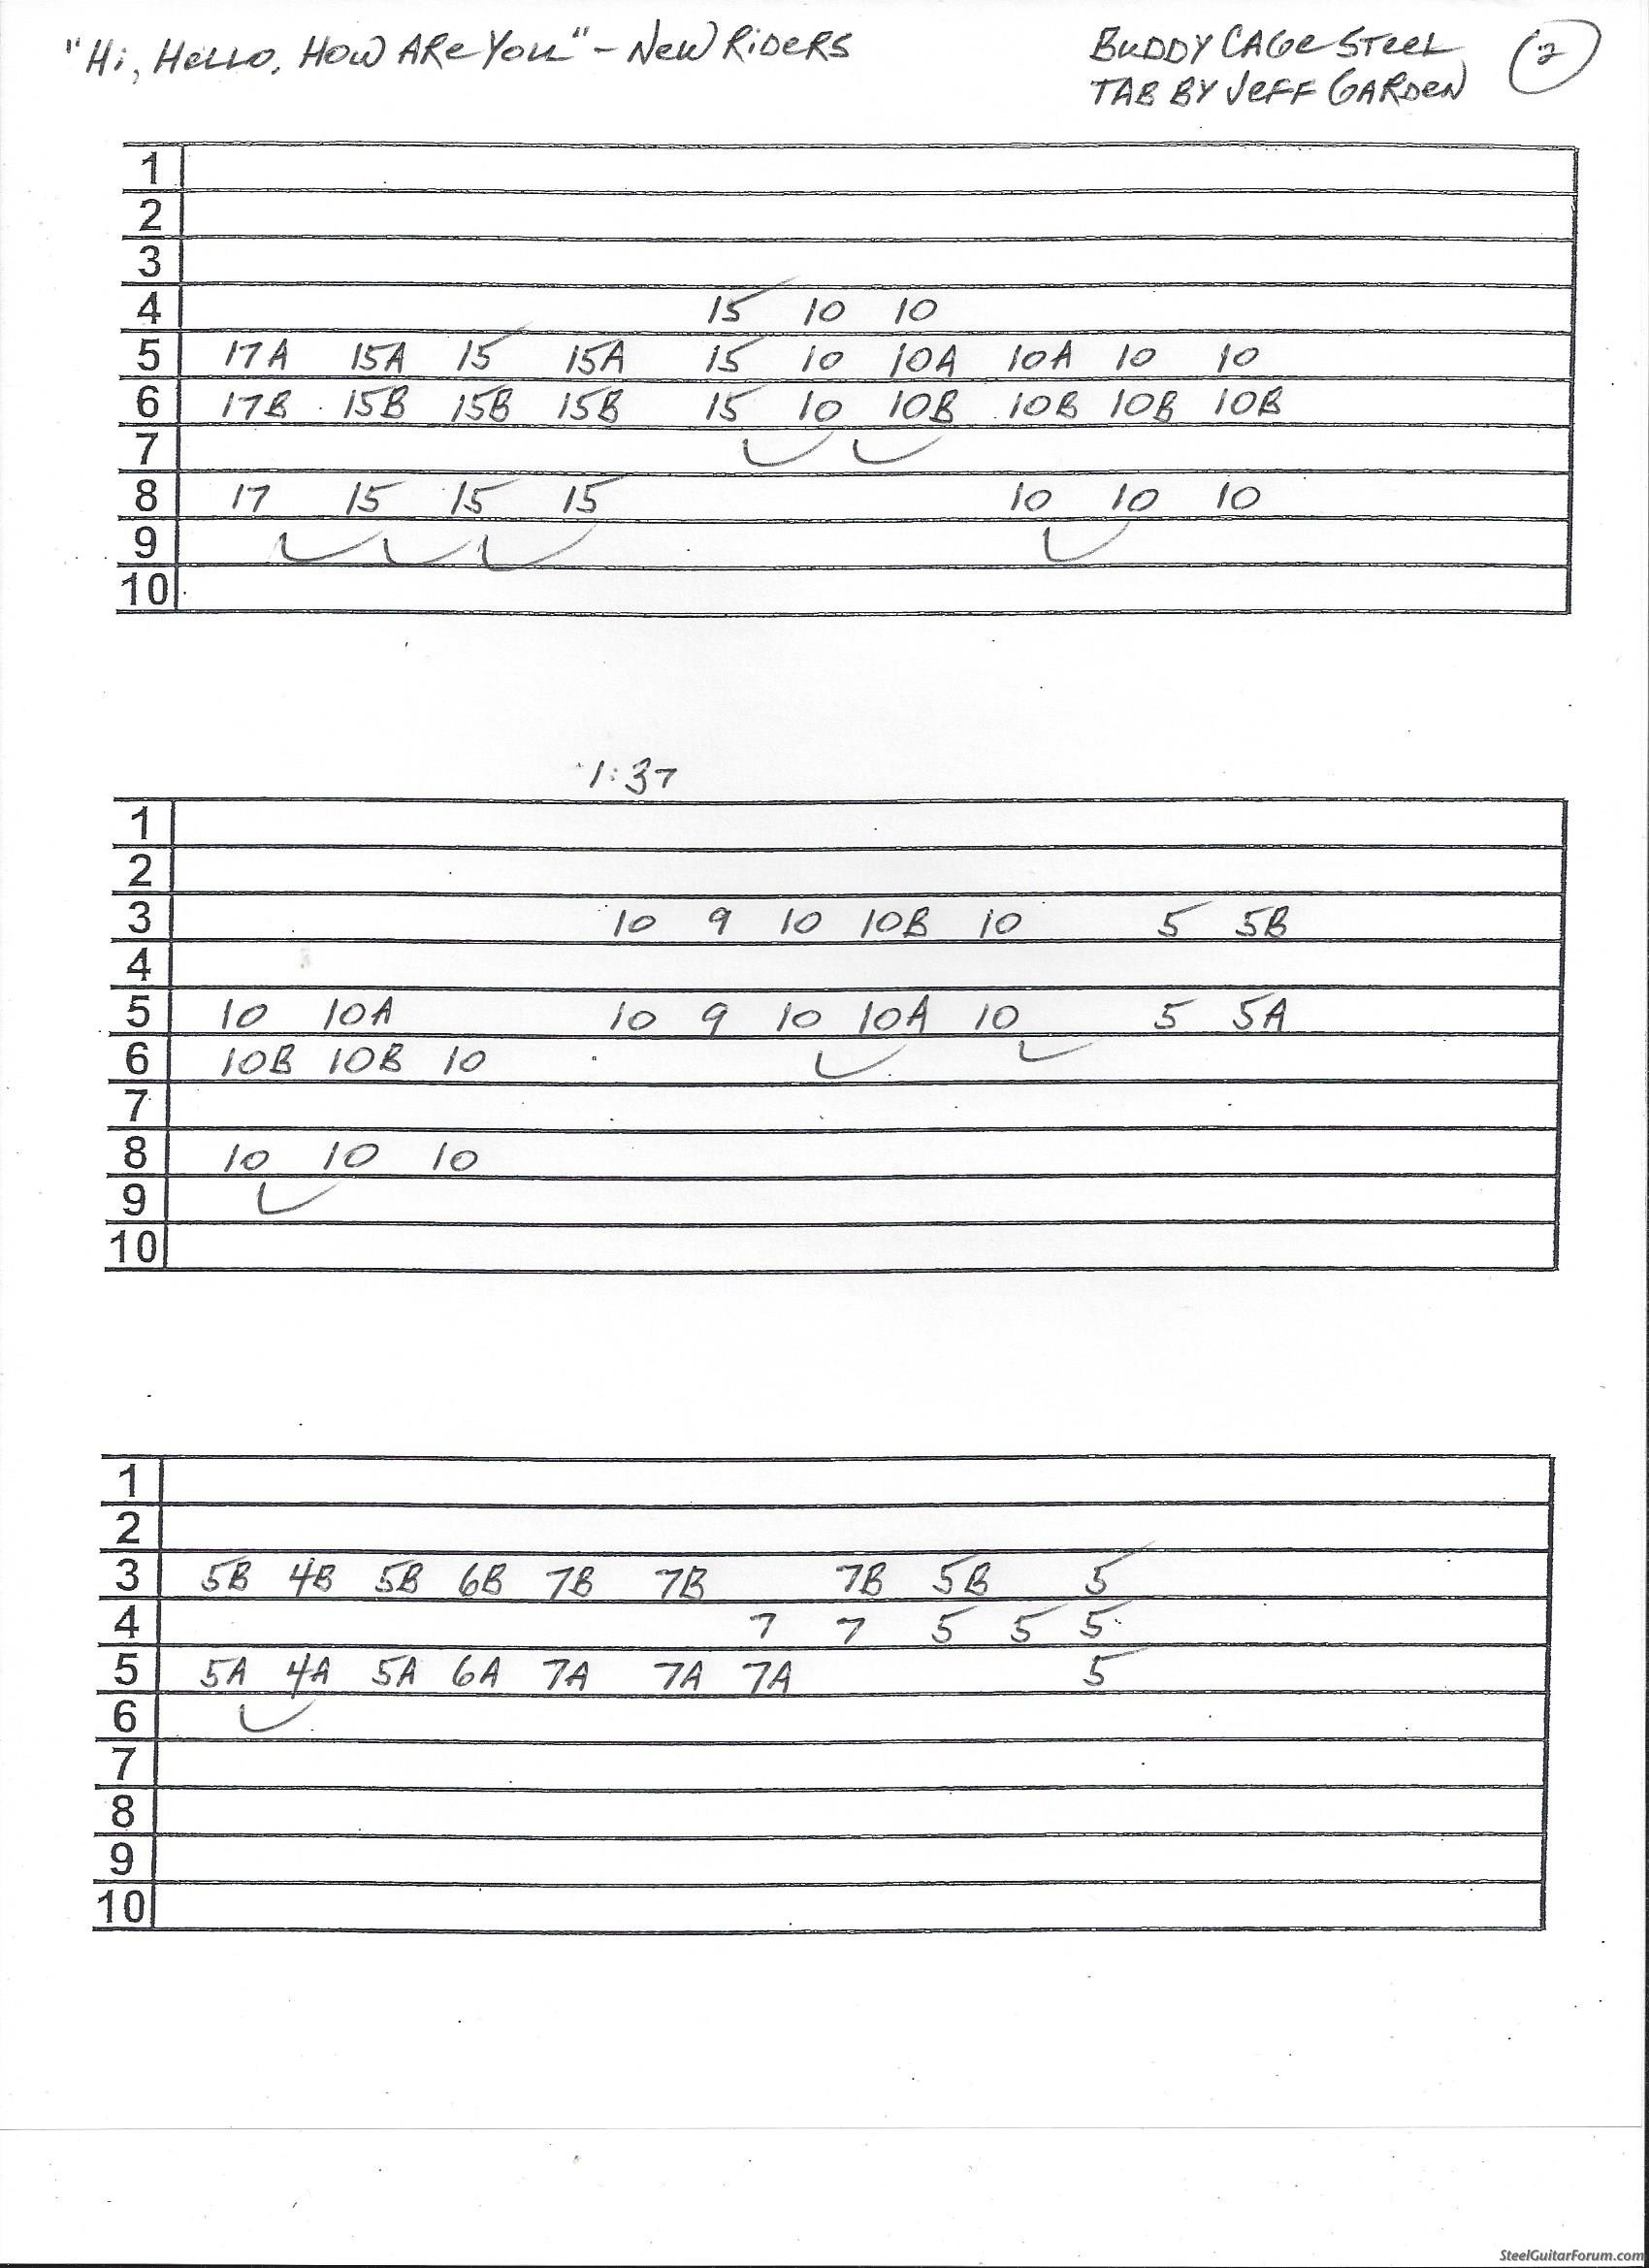 "Hi, Hello, How Are You" - New Riders
Buddy Cage Steel
Tab by Jeff Garden
2
1
2
3
4 15 10 10
5 17A 15A 15 15A 15 10 10A 10A 10 10
6 17B 15B 15B 15B 15 10 10B 10B 10B 10B
7
8 17 15 15 15 10 10 10
9
10
1:37
1
2
3 10 9 10 10B 10 5 5B
4
5 10 10A 10 9 10 10A 10 5 5A
6 10B 10B 10
7
8 10 10 10
9
10
1
2
3 5B 4B 5B 6B 7B 7B 7B 5B 5
4 7 7 5 5 5
5 5A 4A 5A 6A 7A 7A 7A 5
6
7
8
9
10
SteelGuitarForum.com